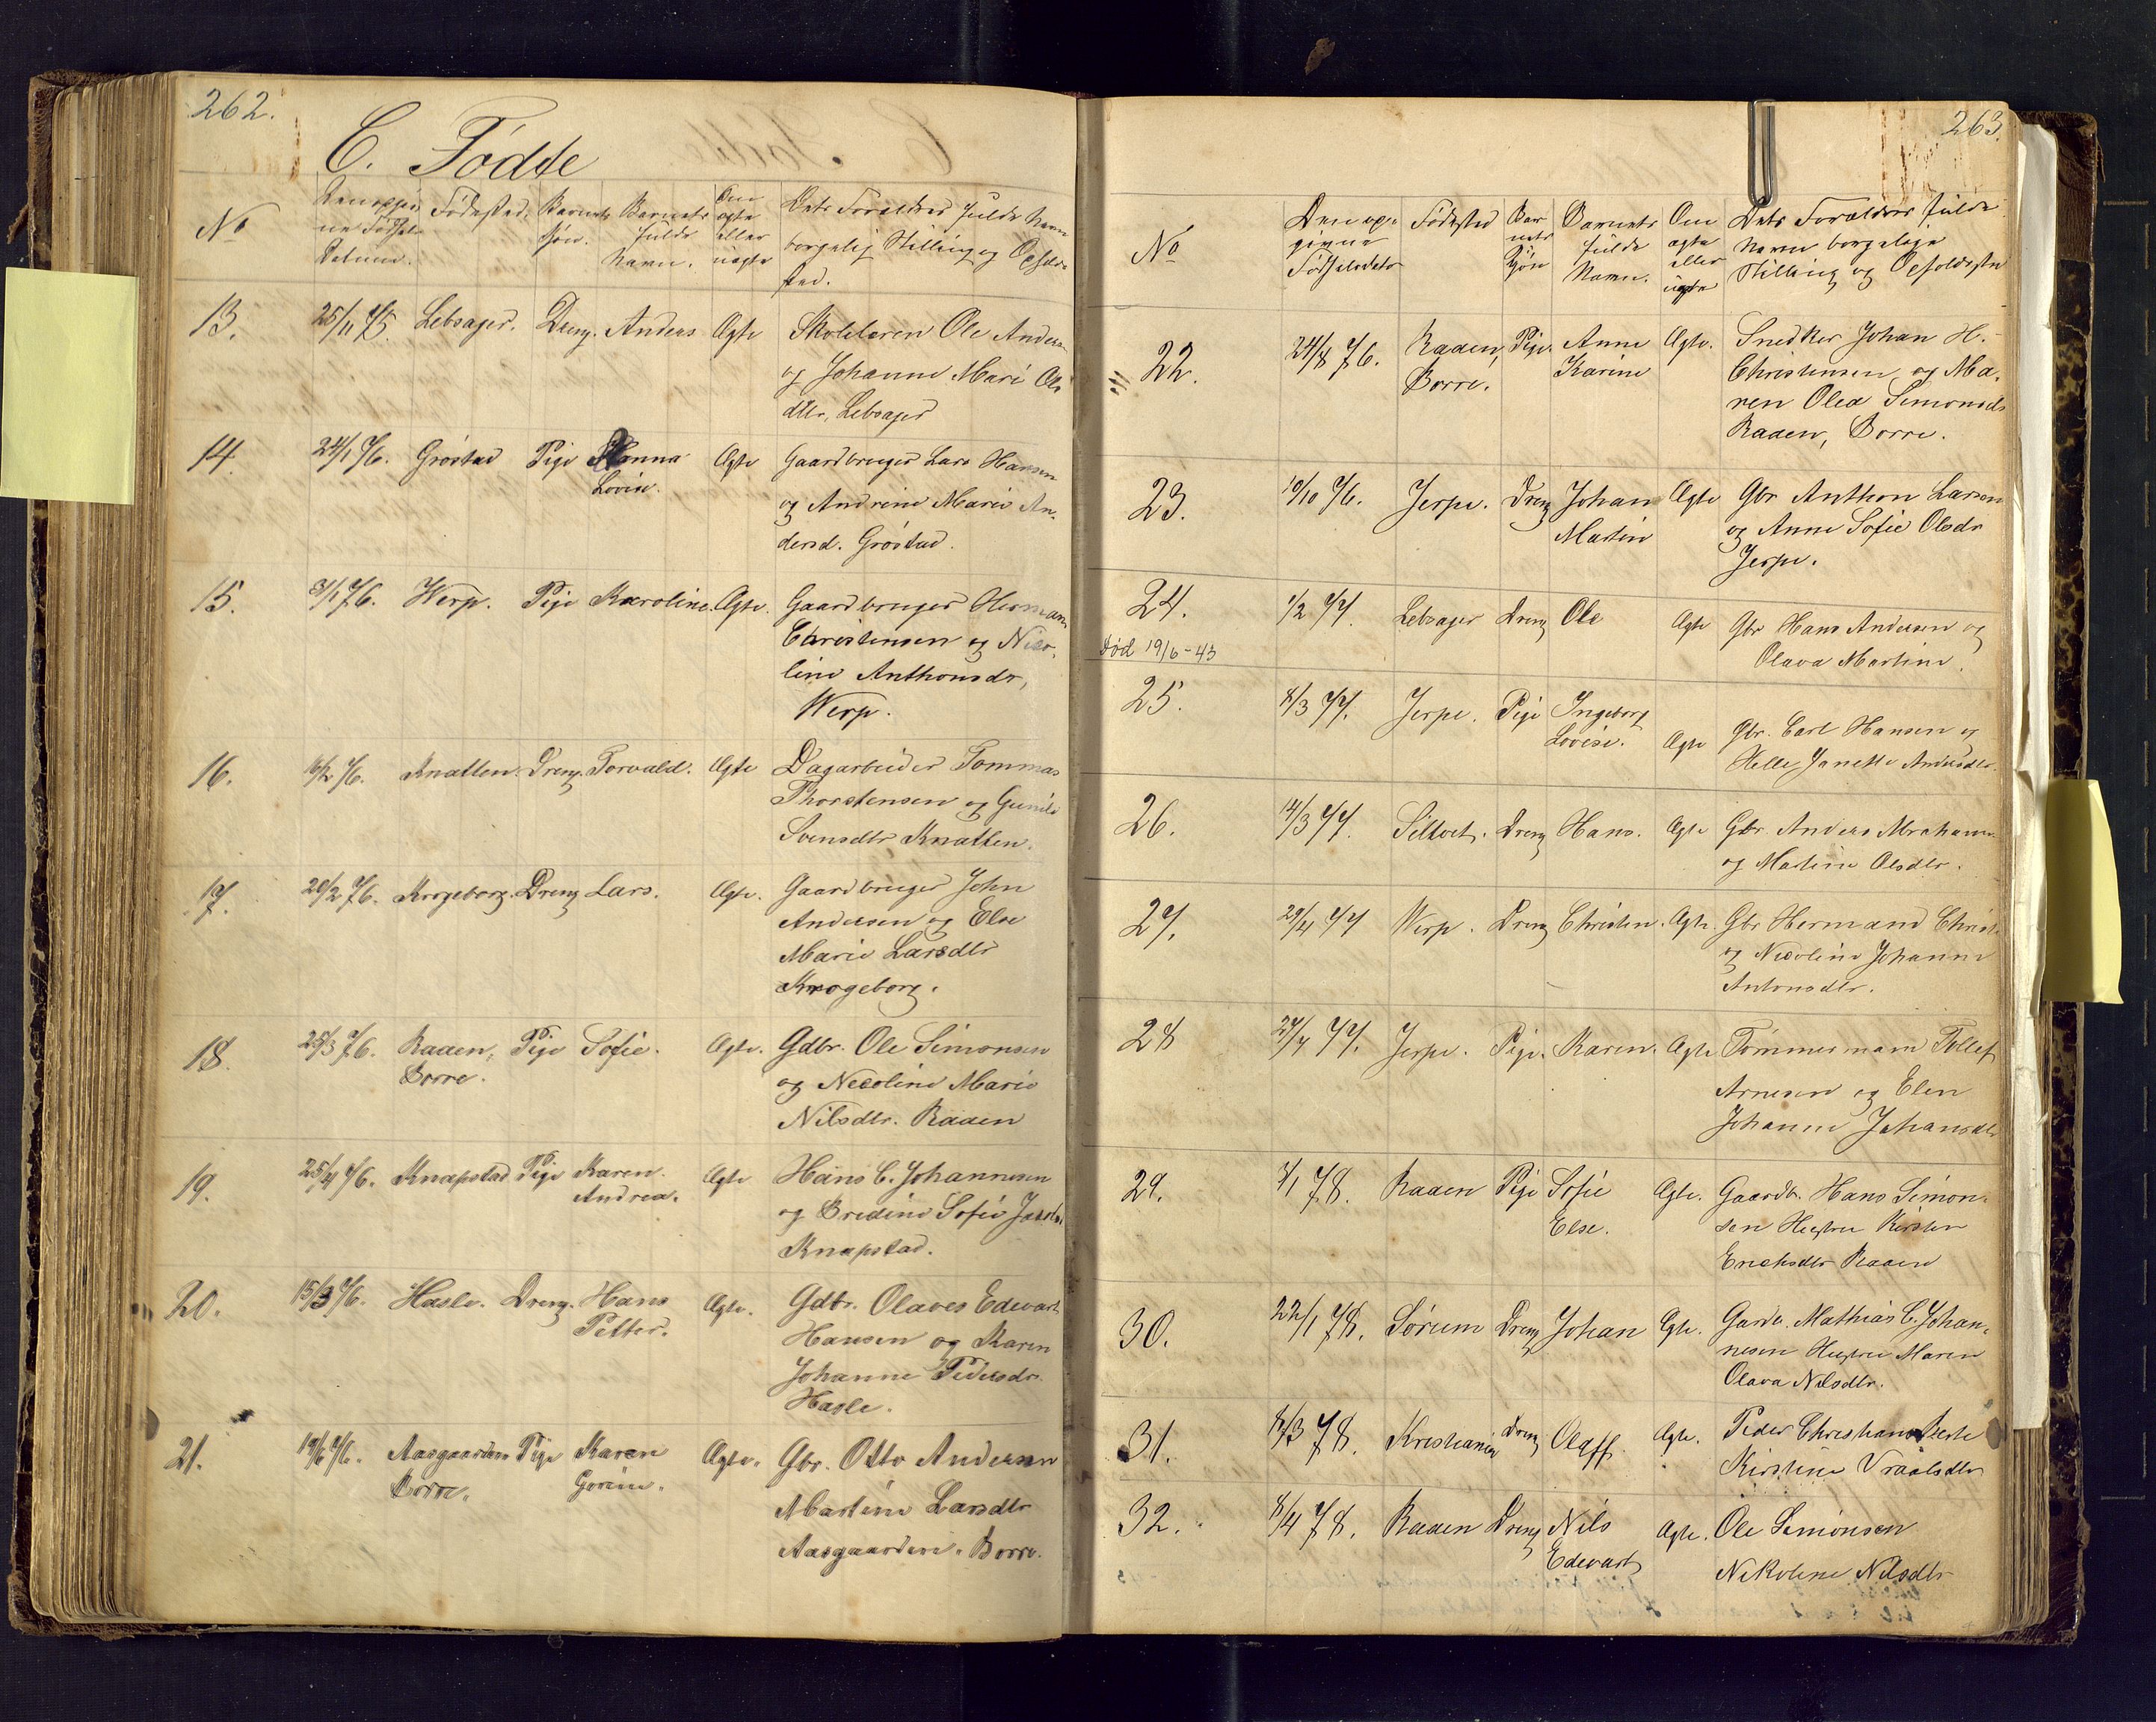 262.
C. Fødte
No
Fødested.
Barnets
Kjøn.
Barnets
fulde
Navn.
Om
ægte
eller
uægte
Dets Forældres fulde Navn
borgerlig Stilling og Opholds-
sted.
13. 25/11 75. Lebsager. Dreng. Anders Ægte Skolelæren Ole Anders
og Johanne Mari Ols
dtr. Lebsager
14. 24/1 76. Grøstad Pige Hanna Ægte Gaardbruger Lars Hansen
Lovise. og Andrine Marie An-
dersd. Grøstad.
15. 31/1 76. Werp. Pige Karoline. Ægte. Gaardbruger Herman
Christensen og Nico-
line Anthonsdr,
Werp.
16. 16/2 76. Knatten. Dreng. Torvald. Ægte Dagarbeider Tommas
Thorstensen og Gunild
Svensdtr Knatten.
17. 20/2 76. Krogeborg. Dreng Lars. Ægte. Gaardbruger John
Andersen og Else
Marie Larsdtr
Krogeborg.
18. 25/3 76. Raaen, Pige Sofie. Ægte. Gdbr. Ole Simonsen
Borre. og Nicoline Marie
Nilsdtr. Raaen
19. 25/4 76. Knapstad Pige Karen Ægte Hans C. Johannesen
Andrea. og Bredine Sofie
Knapstad.
20. 15/3 76. Hasle. Dreng. Hans Ægte. Gdbr. Olaves Edevart
Petter. Hansen og Karen
Johanne Pedersdr.
Hasle.
21. 19/6 76. Aasgaarden Pige Karen Ægte. Gbr. Otto Andersen
Borre. Gorine. Martine Larsdtr
Aasgaarden. Borre.
263
No
Den op-
givne
Fødselsdato
Fødested
Bar-
nets
Kjøn
Barnets
fulde
Navn.
Om
ægte
eller
uægte
Dets Forældres fulde
Navn borgerlige
Stilling og Opholdssted
22. 24/8 76. Raaen, Pige. Anne Ægte. Snedker Johan H.
Borre. Karine Christensen og Ma-
ren Olea Simonsdr
Raaen, Borre.
23. 10/10 76. Jerpe. Dreng Johan Ægte Gbr Anthon Larsen
Martin og Anne Sofie Olsdr
Jerpe.
24. 1/2 77. Lebsager Dreng Ole Ægte Gbr Hans Andersen og
Død 19/6-43 Olava Martine.
25. 8/3 77. Jerpe. Pige Ingeborg
Lovise. Ægte Gbr. Carl Hansen og
Helle Janette Andersdtr.
26. 14/3 77. Siltvet. Dreng Hans. Ægte Gbr. Anders Abraham
og Martine Olsdtr.
27. 29/4 77 Werp. Dreng Christen. Ægte. Gbr Hermand Christ
og Nicoline Johanne
Antonsdtr.
28 27/7 77. Jerpe. Pige. Karen. Ægte Tømmermann Tollef
Arnesen og Elen
Johanne Johansdtr
29. 3/1 78. Raaen Pige Sofie Ægte. Gaardbr. Hans Simon-
Else. sen Hustru Kirsten
Ericksdtr Raaen
30. 22/1 78. Sørum Dreng Johan Ægte. Gardbr. Mathias C. Johan-
nesen Hustru Maren
Olava Nilsdtr.
31. 8/3 78. Kristiania Dreng Olaff Ægte. Peder Christians
Kirstine Vraalsdtr
32. 8/4 78. Raaen Dreng Nils Ægte. Ole Simonsen
Edevart Nikoline Nilsdtr